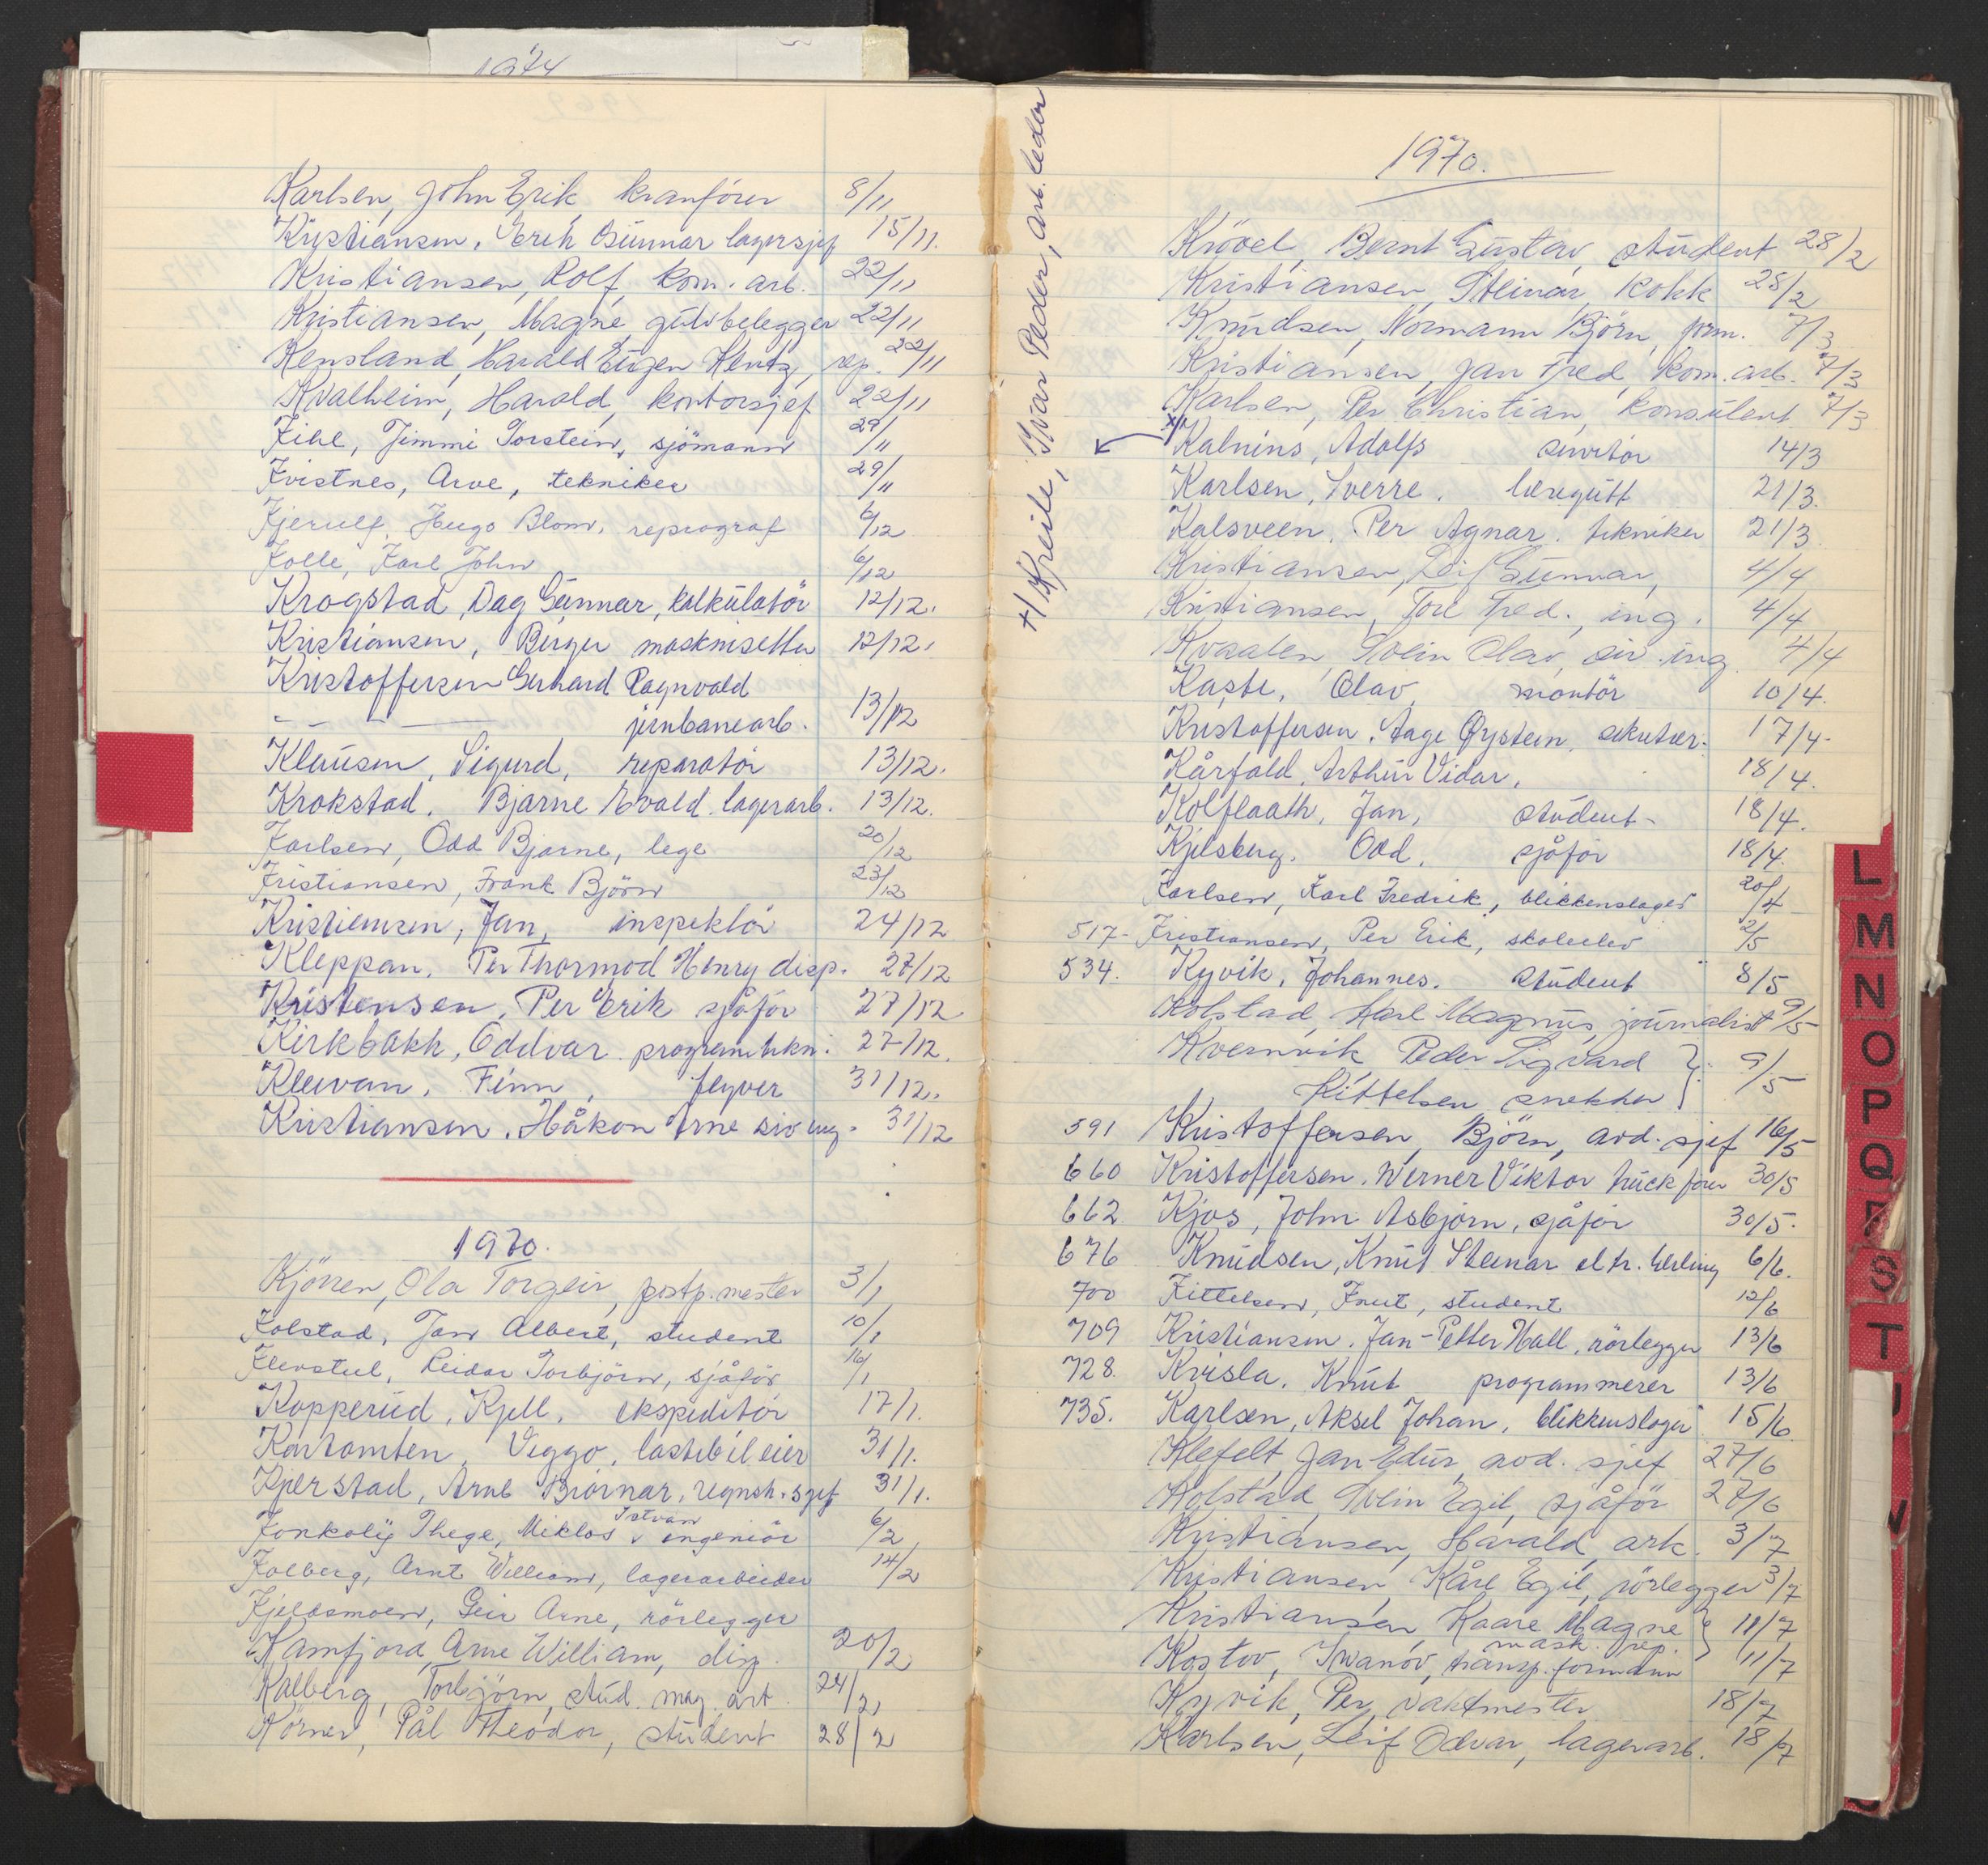 1974
Karlsen, John Erik, kranförer 8/11
Kristiansen, Erik Gunnar lagersjef 15/11.
Kristiansen, Rolf, kom. arb. 22/11
Kristiansen, Magne, gulvbelegger 22/11
Kensland, Harald Eugen Hentz, rep. 22/11
Kvalheim, Harald, kontorsjef 22/11
Kihl, Jimmi Torstein, sjömann 29/11
Kvistnes, Arve, tekniker 29/11
Kjerulf, Hugo Blom, reprograf 6/12
Kolle, Karl John 6/12
Krogstad, Dag Gunnar, kalkulatör 12/12.
Kristiansen, Birger maskinsetter 12/12.
Kristoffersen Gerhard Ragnvald
— — — jernbanearb. 13/12
Klausen, Sigurd, reparatör 13/12.
Krokstad, Bjarne Evald lagerarb. 13/12.
Karlsen, Odd Bjarne, lege 20/12
Kristiansen, Frank Björn 23/12
Kristiansen, Jan, inspektör 24/12
Kleppan, Per Thormod Henry disp. 27/12
Kristensen, Per Erik sjåför 27/12
Kirkbakk, Oddvar programtekn. 27/12.
Klevan, Finn, flyver 31/12.
Kristiansen, Håkon Arne siv ing. 31/12
1970.
Kjönen, Ola Torgeir, postp.mester 3/1
Kolstad, Jan Albert, student 10/1
Klevstul, Reidar Torbjörn, sjåför 16/1
Kopperud, Kjell, ekspeditör 17/1.
Kartomten, Viggo, lastebileier 31/1.
Kjerstad, Arne Björnar, regnsk.sjef 31/1.
Konkolÿ Thege, Miklos Istvan ingeniör 6/2
Kolberg, Arnt William, lagerarbeider 14/2
Kjeldsmoen, Geir Arne, rörlegger
Kamfjord, Arne William, disp. 20/2
Kalberg, Torbjörn, stud. mag. art. 24/2
Körner, Pål Theodor, student 28/2
+) Kreile, Ivar Peder, arb. leder
1970.
Krövel, Bernt Gustav, student 28/2
Kristiansen, Steinar, kokk 28/2
Knudsen, Normann Björn, form. 7/3
Kristiansen, Jan Fred, kom. arb. 7/3
Karlsen, Per Christian, konsulent 7/3
x) Kalnins, Adolfs servitör 14/3
Karlsen, Sverre, læregutt 21/3.
Kalsveen, Per Agnar, tekniker 21/3.
Kristiansen, Leif Gunnar, 4/4
Kristiansen, Tore Fred., ing. 4/4
Kvaalen, Svein Olav, siv. ing. 4/4
Kaste, Olav, montör 10/4.
Kristoffersen, Aage Øystein, sekretær. 17/4.
Kårfald, Arthur Vidar, 18/4.
Kolflaath, Jan, student 18/4.
Kjelsberg, Odd, sjåför 18/4.
Karlsen, Karl Fredrik, blikkenslager 20/4
517- Kristiansen, Per Erik, skoleelev 2/5
534. Kyvik, Johannes, student 8/5
Kolstad, Karl Magnus, journalist 9/5
Kvernvik Peder Sigvard }
Kittelsen snekker } 9/5
591 Kristoffersen, Björn, avd. sjef 16/5
660 Kristoffersen, Werner Viktor truckförer 30/5
662 Kjos, John Asbjörn, sjåför 30/5.
676 Knudsen, Knut Steinar el tr. lærling 6/6.
700 Kittelsen, Knut, student 12/6
709 Kristiansen, Jan-Petter Hall, rörlegger 13/6
728. Krisla, Knut programmerer 13/6
735. Karlsen, Aksel Johan, blikkenslager 15/6
Klefelt, Jan Edur, avd. sjef 27/6
Kolstad, Svein Egil, sjåför 27/6
Kristiansen, Harald, ark. 3/7
Kristiansen, Kåre Egil, rörlegger 3/7
Kristiansen, Kaare Magne }
mask. rep. } 11/7
Kostov, Ivanov, transp. formann 11/7
Kyvik, Per, vaktmester 18/7
Karlsen, Leif Odvar, lagerarb. 18/7
L
M
N
O
P
Q
R
S
T
U
V